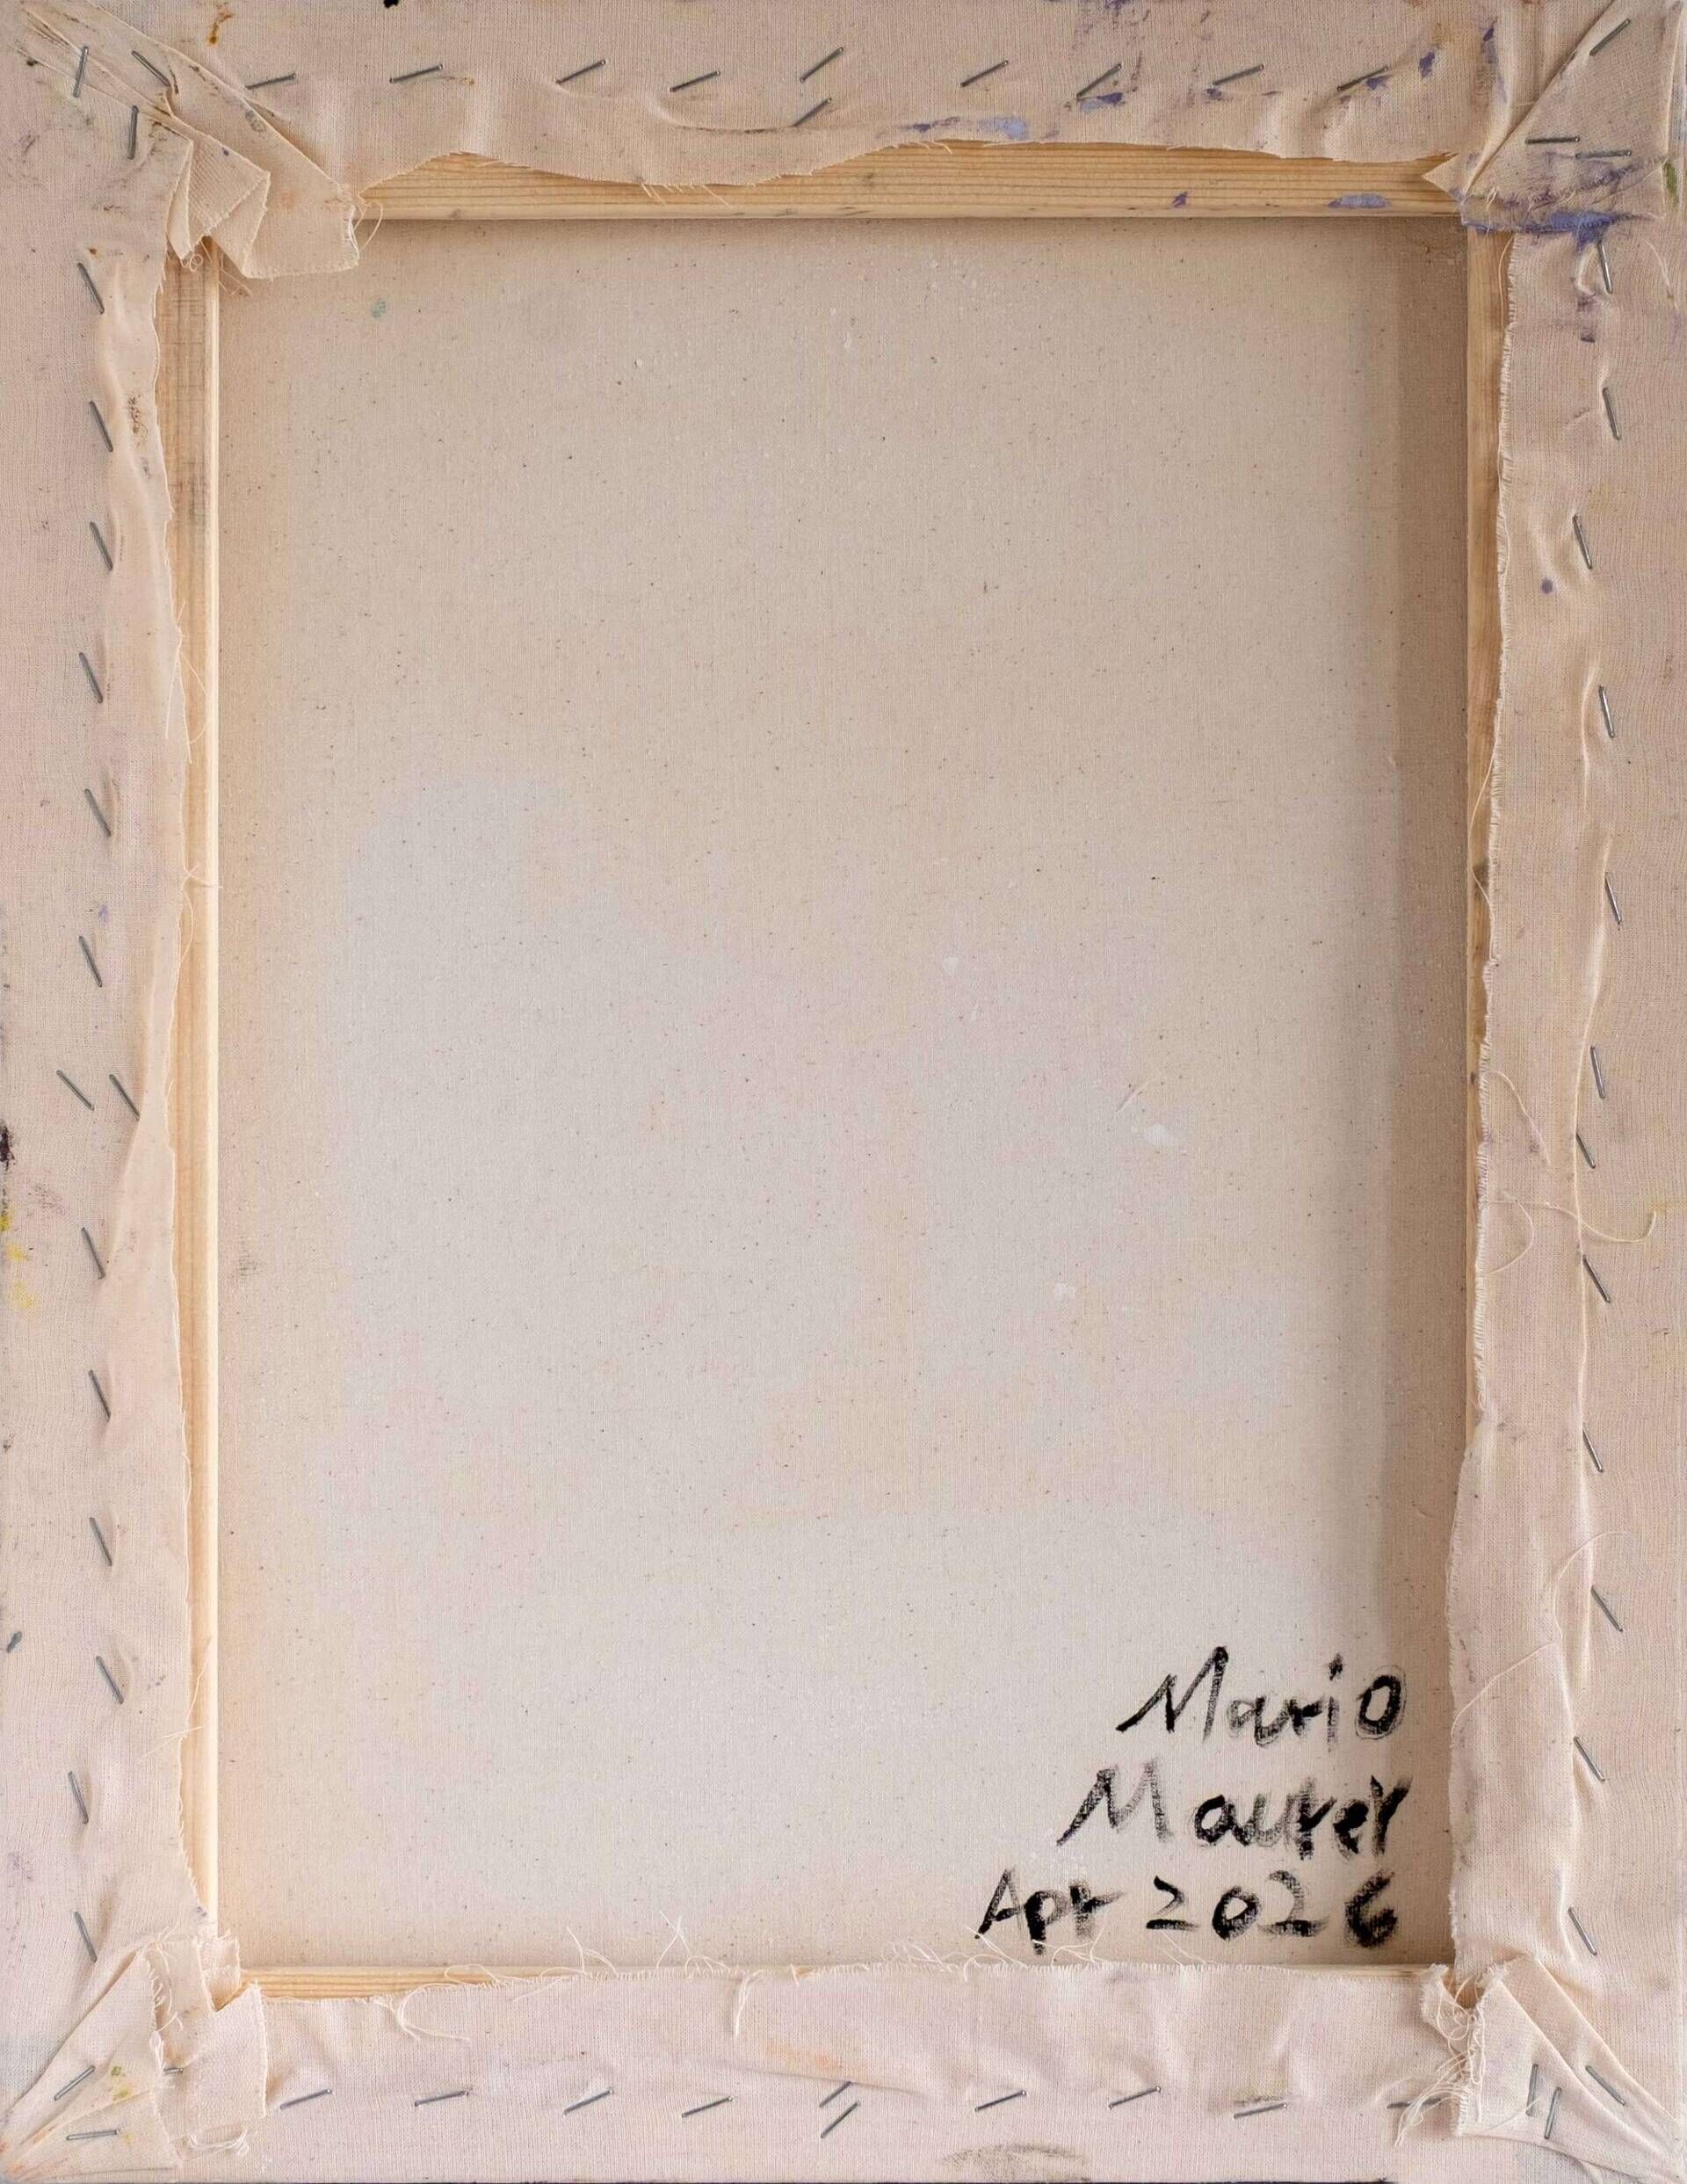 Mario
Maurer
Apr 2026